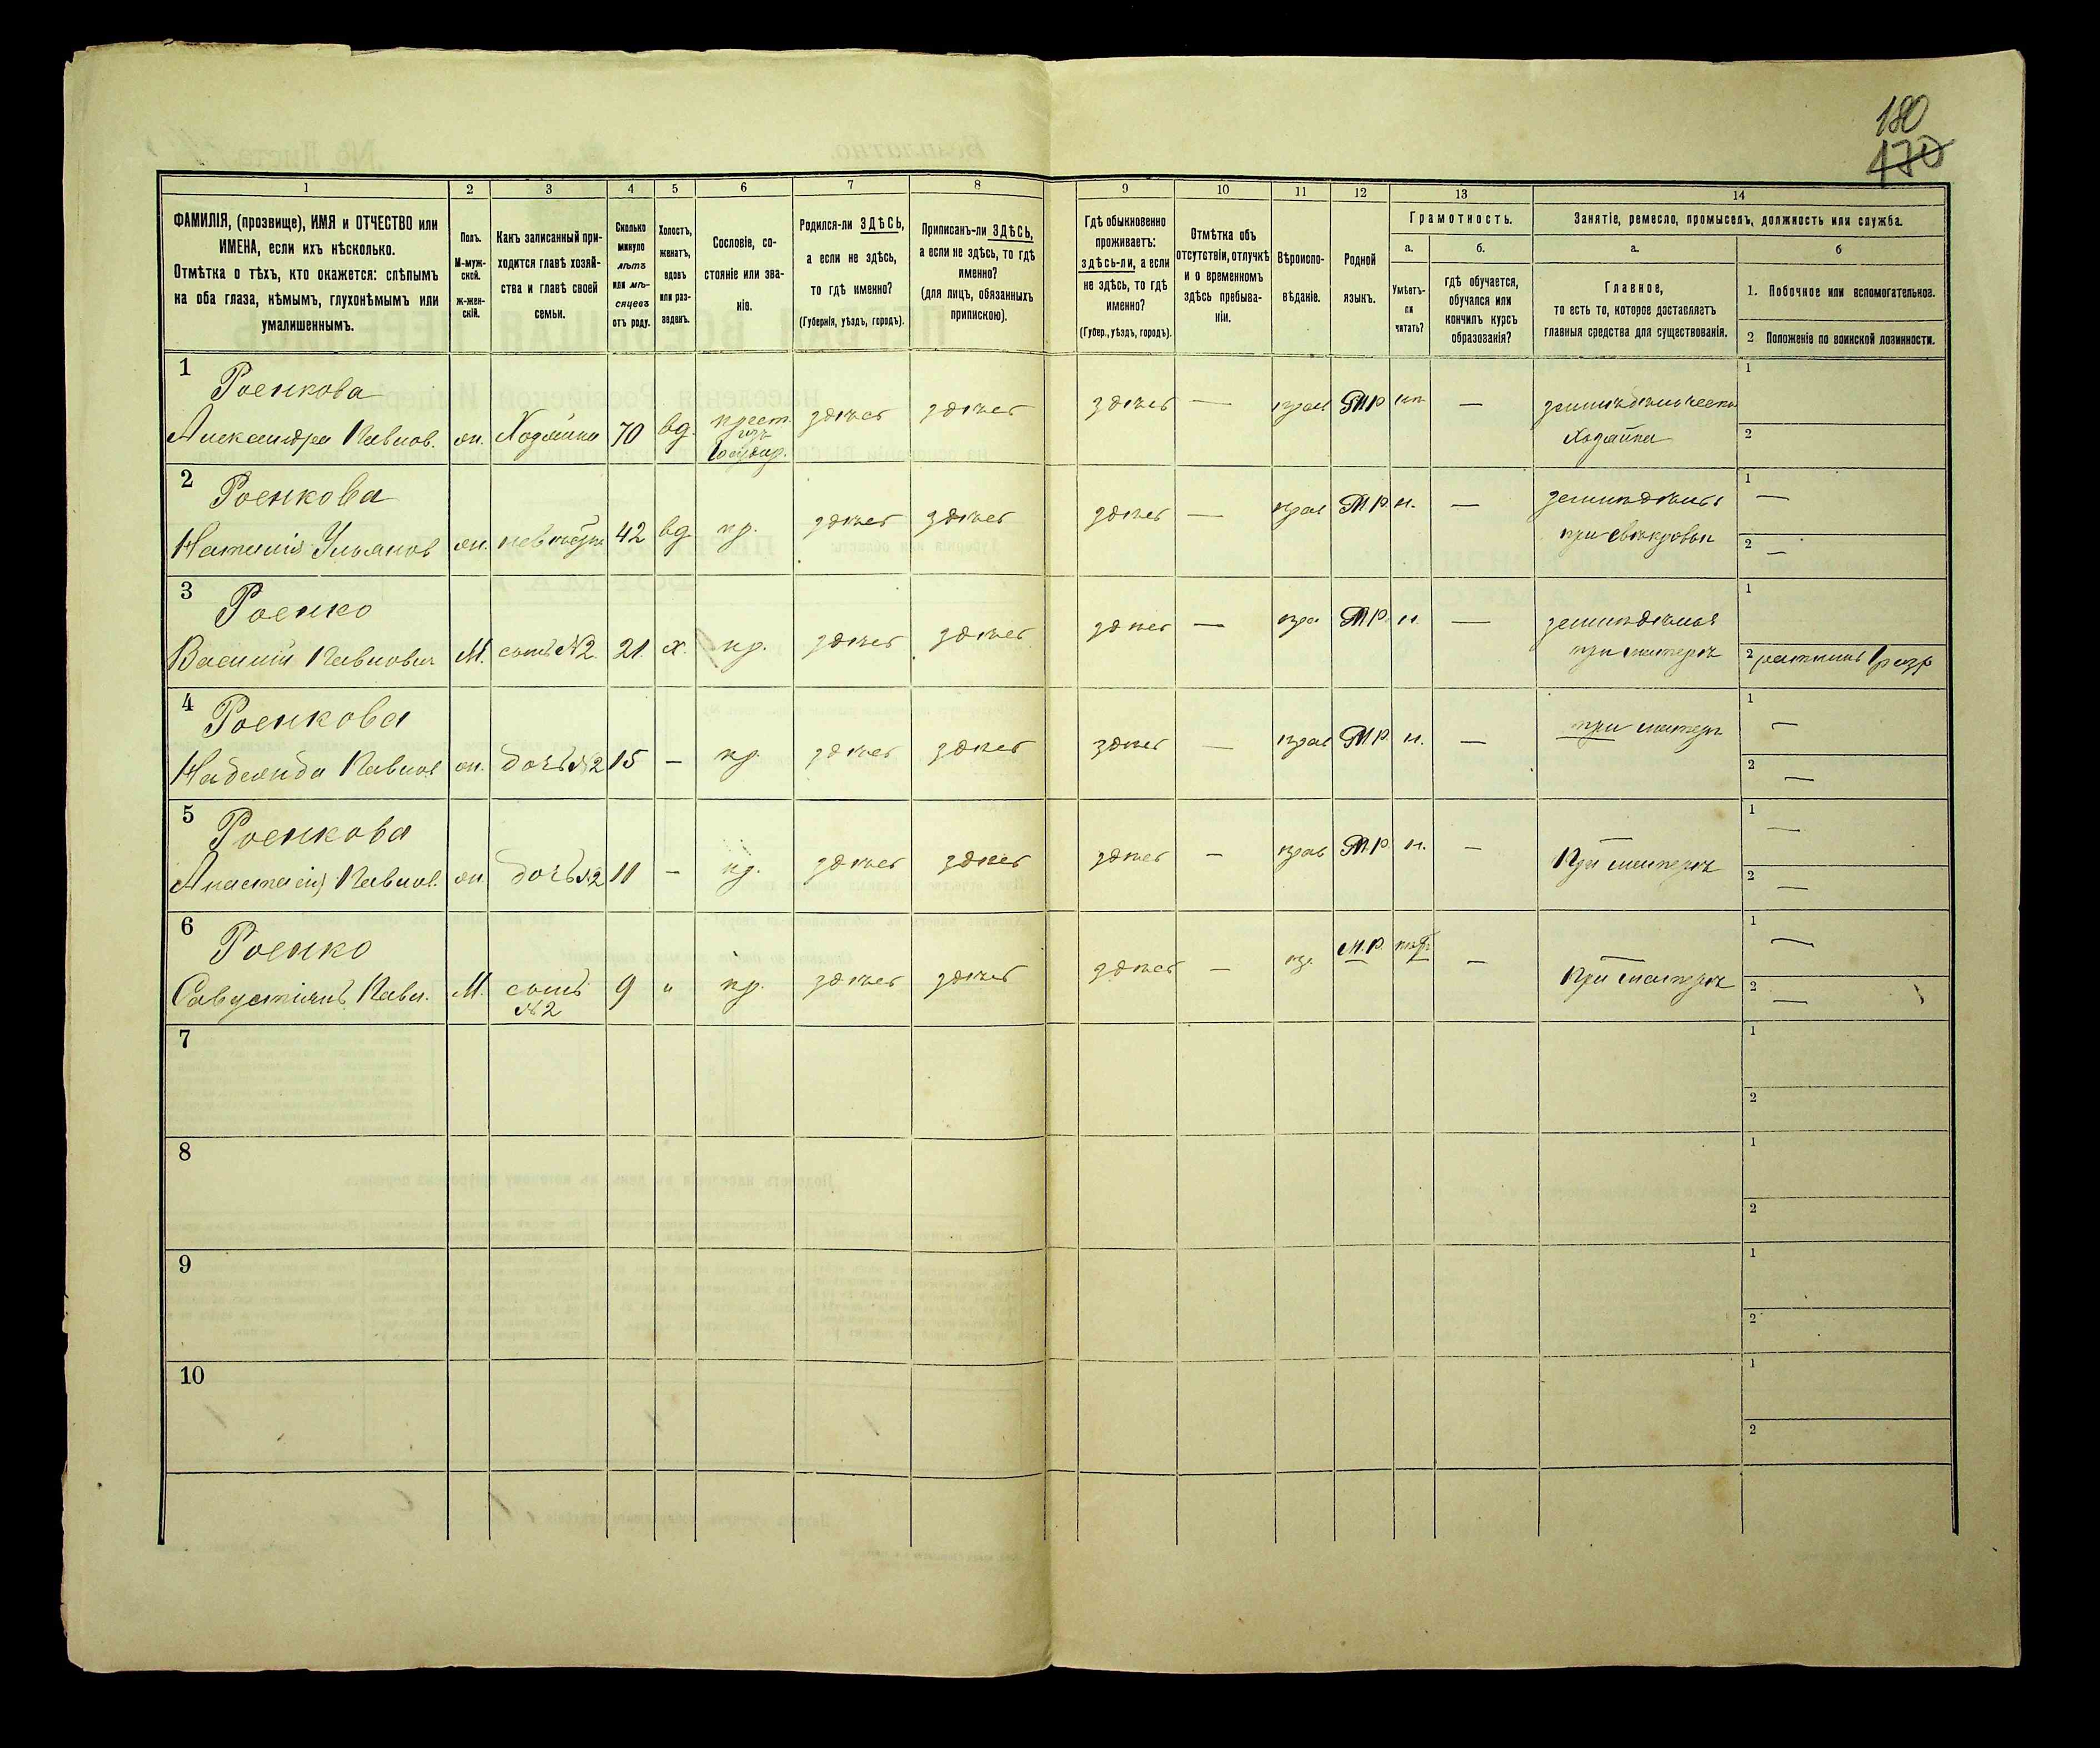 180
470
1 2 3 4 5 6 7 8 9 10 11 12 13 14
ФАМИЛІЯ, (прозвище), ИМЯ и ОТЧЕСТВО или
ИМЕНА, если ихъ нѣсколько.
Отмѣтка о тѣхъ, кто окажется: слѣпымъ
на оба глаза, нѣмымъ, глухонѣмымъ или
умалишеннымъ.
Полъ.
М-муж-
ской.
ж-жен-
скій.
Какъ записанный при-
ходится главѣ хозяй-
ства и главѣ своей
семьи.
Сколько
минуло
лѣтъ
или мѣ-
сяцевъ
отъ роду.
Холостъ,
женатъ,
вдовъ
или раз-
веденъ.
Сословіе, со-
стояніе или зва-
ніе.
Родился-ли ЗДѢСЬ,
а если не здѣсь,
то гдѣ именно?
(Губернія, уѣздъ, городъ).
Приписанъ-ли ЗДѢСЬ,
а если не здѣсь, то гдѣ
именно?
(для лицъ, обязанныхъ
припискою).
Гдѣ обыкновенно
проживаетъ:
здѣсь-ли, а если
не здѣсь, то гдѣ
именно?
(Губер., уѣздъ, городъ).
Отмѣтка объ
отсутствіи, отлучкѣ
и о временномъ
здѣсь пребыва-
ніи.
Вѣроиспо-
вѣданіе.
Родной
языкъ.
Грамотность.
а. б.
Умѣетъ-
ли
читать?
гдѣ обучается,
обучался или
кончилъ курсъ
образованія?
Занятіе, ремесло, промыселъ, должность или служба.
а. б
Главное,
то есть то, которое доставляетъ
главныя средства для существованія.
1. Побочное или вспомогательное.
2 Положеніе по воинской повинности.
1 Роенкова
Александра Павлов. ж. Хозяйка 70 вд. крест. изъ Государ. здѣсь здѣсь здѣсь — прав М.Р. — земледѣльческа
Хозяйка
1
2
2 Роенкова
Наталія Ульянов ж. невѣстка 42 вд кр. здѣсь здѣсь здѣсь — прав М.Р. н. — земледѣліе
при свекрови
1 —
2 —
3 Роенко
Василій Павлович М. сынъ №2. 21 х. кр. здѣсь здѣсь здѣсь — пра М.Р. н. — земледѣліе
при матерѣ
1
2 ратникъ 1 разр
4 Роенкова
Надежда Павлов ж. дочь №2 15 — кр. здѣсь здѣсь здѣсь — прав М.Р. н. — при матерѣ
1 —
2 —
5 Роенкова
Анастасія Павлов. ж дочь №2 11 — кр. здѣсь здѣсь здѣсь — прав М.Р. н. — При матерѣ
1 —
2 —
6 Роенко
Савустіянъ Павл. М. сынъ №2 9 „ кр. здѣсь здѣсь здѣсь — пр. М.Р. — При матерѣ
1 —
2 —
7
1
2
8
1
2
9
1
2
10
1
2